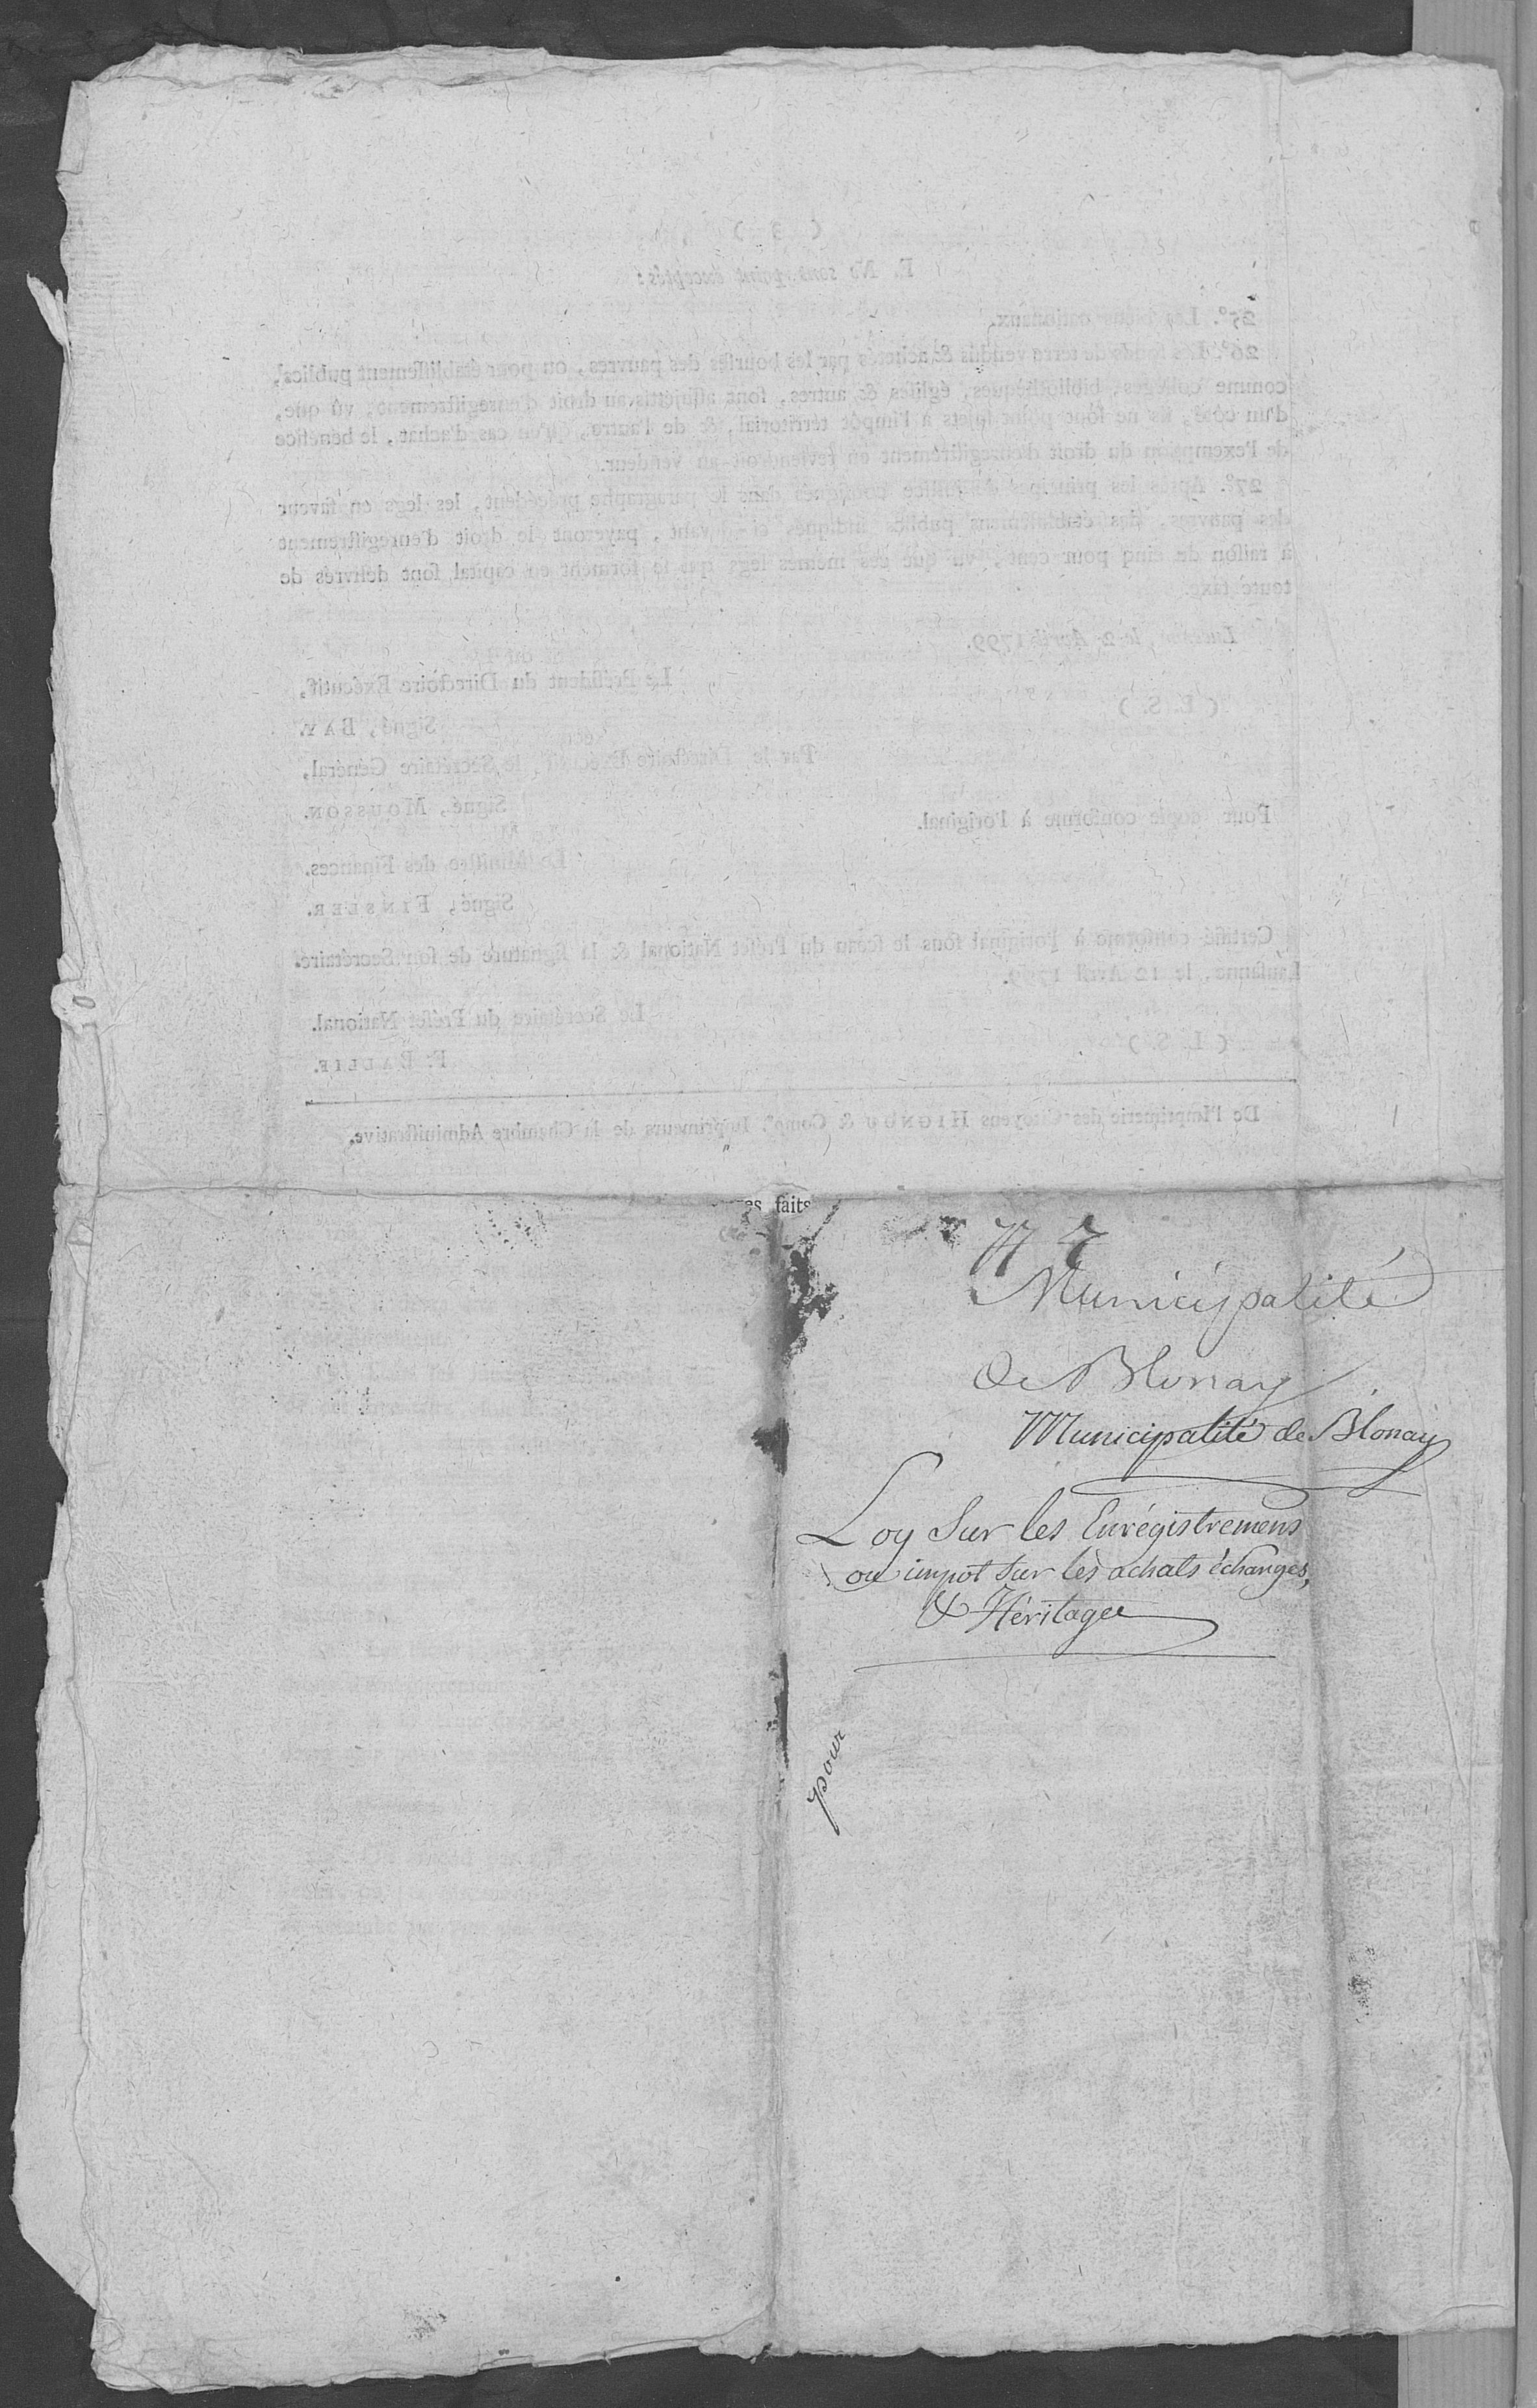 ( 3 )
E. Ne sont point exceptés :
25°. Les biens nationaux.
26°. Les fonds de terre vendus & achetés par les bourses des pauvres, ou pour établissement publics,
comme collèges, bibliothèques, églises & autres, sont assujettis au droit d'enregistrement, vû que,
d'un côté, ils ne sont point sujets à l'impôt térritorial, & de l'autre, qu'en cas d'achat, le bénéfice
de l'exemption du droit d'enregistrement en reviendroit au vendeur.
27°. Après les principes de justice consignés dans le paragraphe précédent, les legs en faveur
des pauvres, des établissemens publics indiqués ci-devant, payeront le droit d'enregistrement
à raison de cinq pour cent, vu que ces mêmes legs qui se forment en capital sont délivrés de
toute taxe.
Lucerne, le 2 Avril 1799.
Le Président du Directoire Exécutif,
( L. S. )
Signé, BAY.
Par le Directoire Exécutif, le Secrétaire Général,
Signé, MOUSSON.
Pour copie conforme à l'original.
Le Ministre des Finances.
Signé, FINSLER.
Certifié conforme à l'original sous le sceau du Préfet National & la signature de son Secrétaire.
Lausanne, le 12 Avril 1799.
Le Secrétaire du Préfet National.
( L. S. )
De l'Imprimerie des Citoyens HIGNOU & Comp. Imprimeurs de la Chambre Administrative.
es faits
N 7
Municipalité
de Blonay
Municipalité de Blonay
Loy Sur les Enrégistremens
ou impot sur les achats échanges,
& Héritages
pour